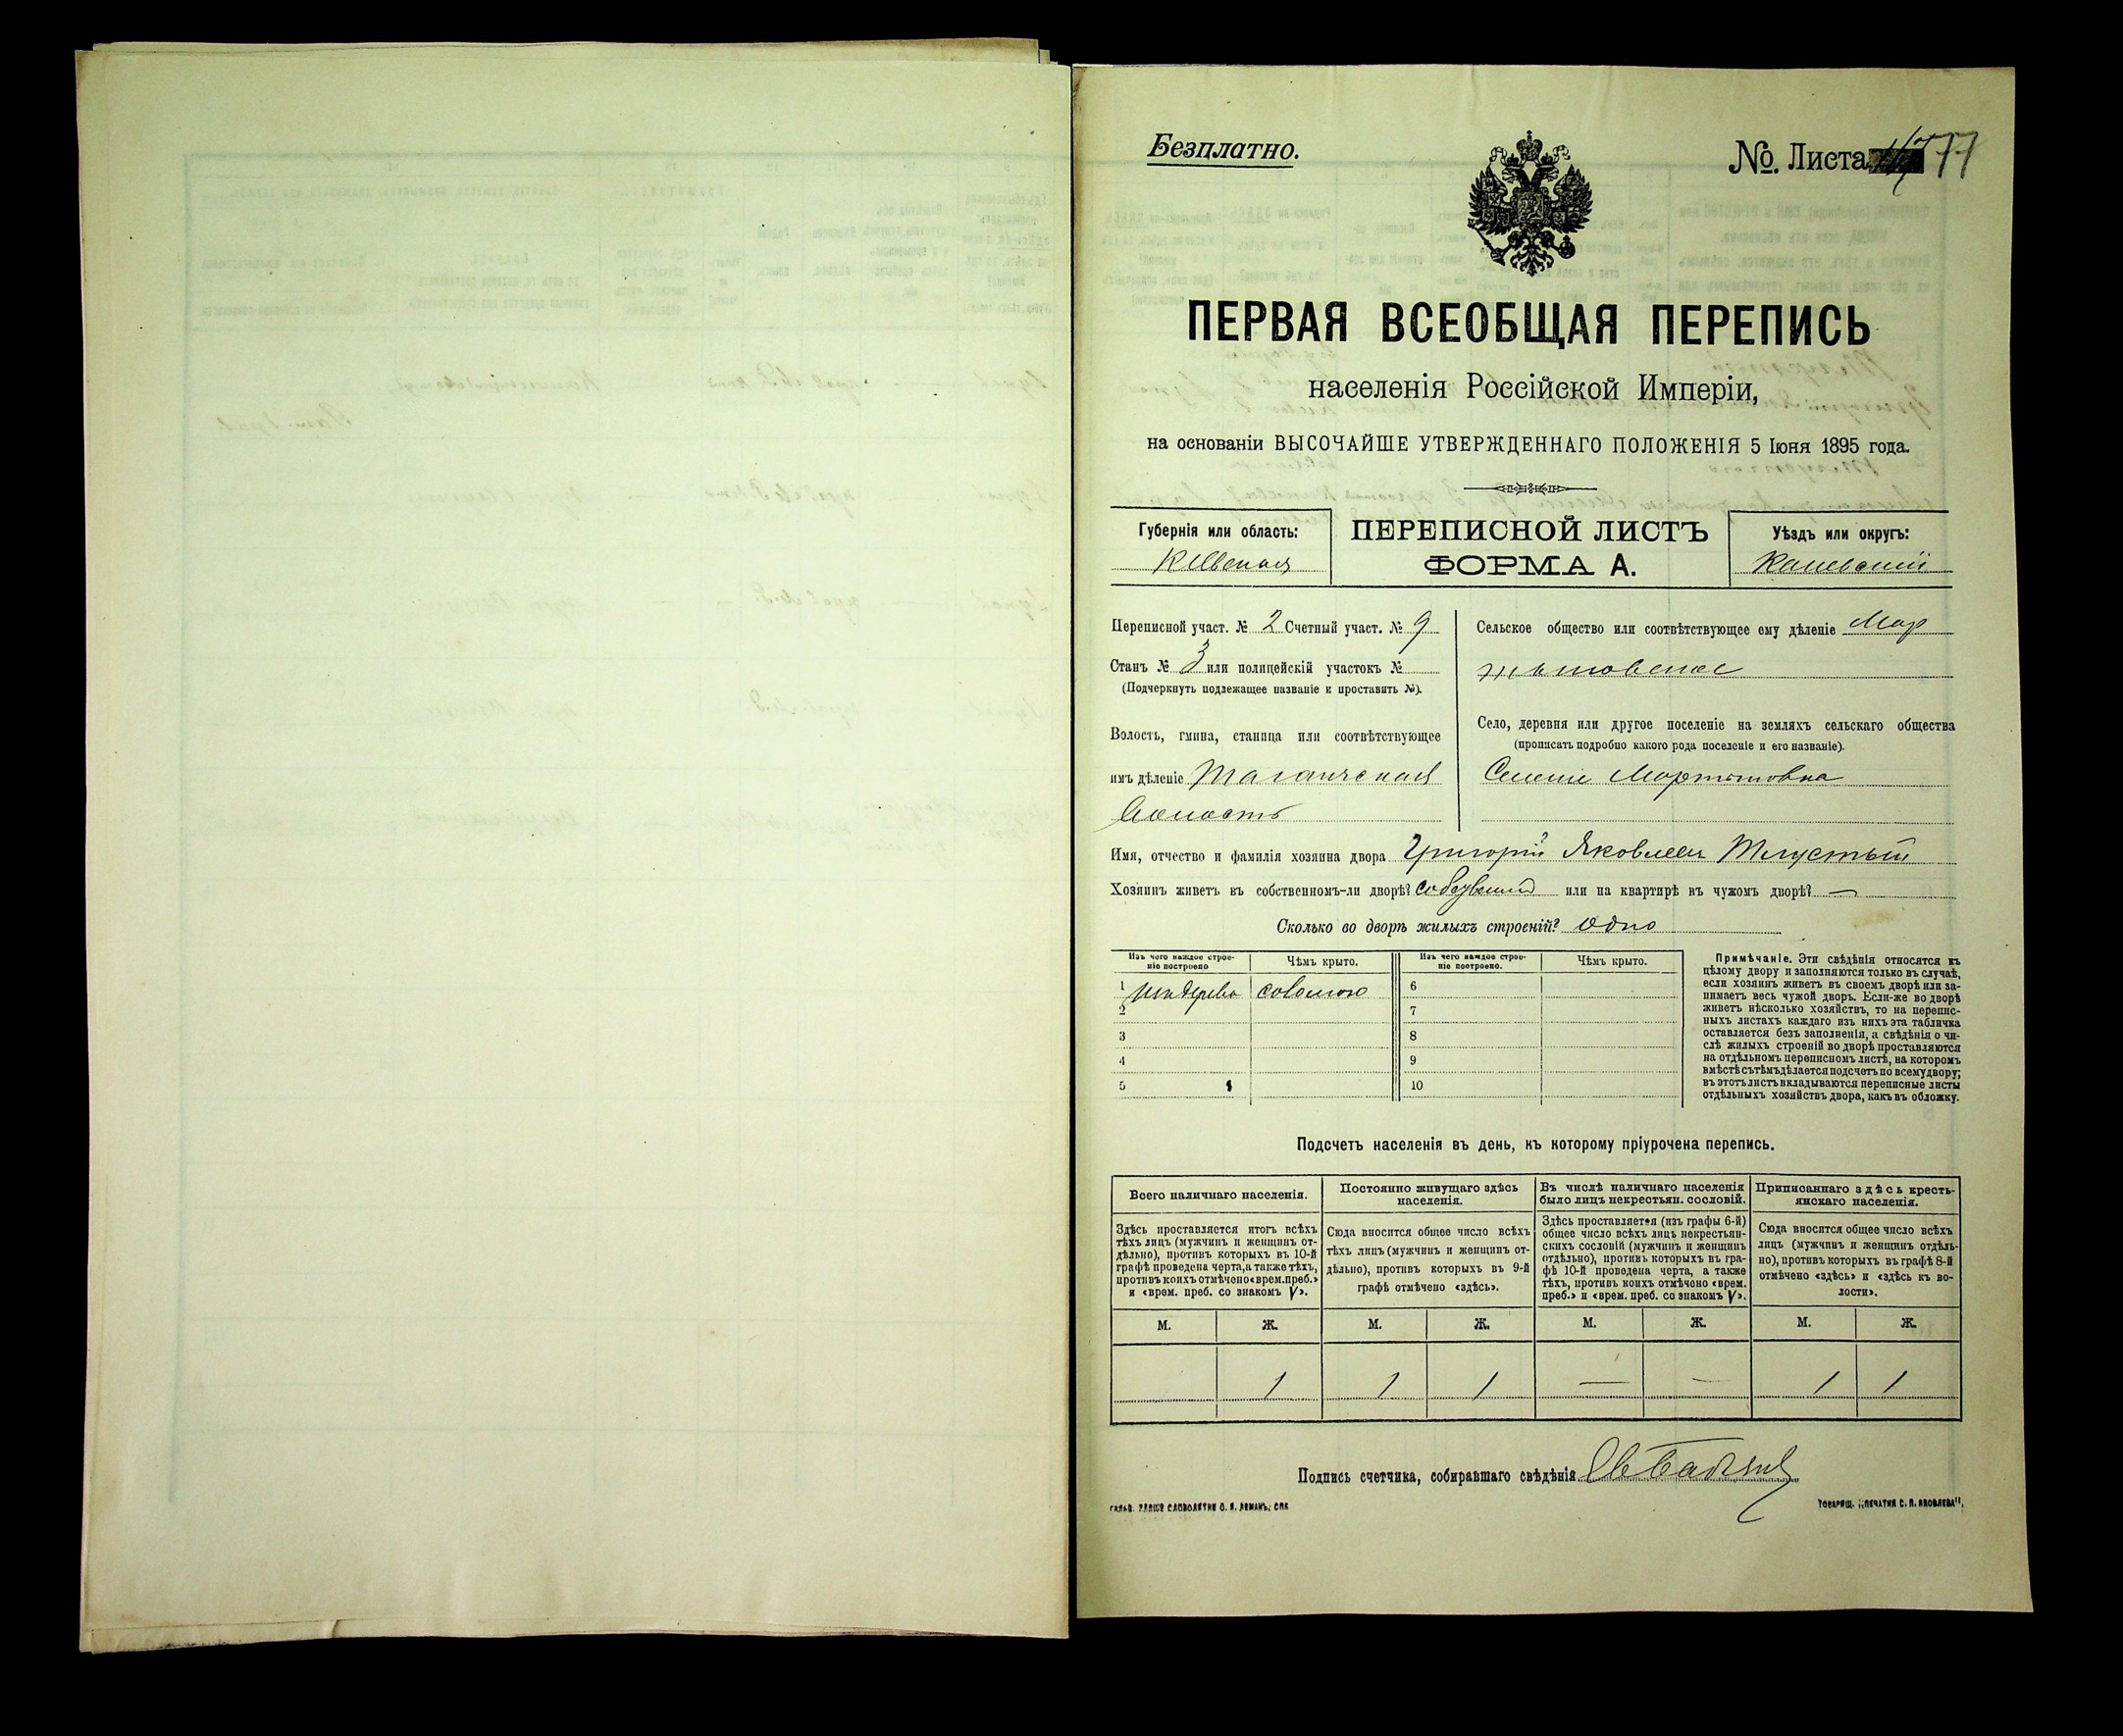 Безплатно.
№. Листа 77
ПЕРВАЯ ВСЕОБЩАЯ ПЕРЕПИСЬ
населенія Россійской Имперіи,
на основаніи ВЫСОЧАЙШЕ УТВЕРЖДЕННАГО ПОЛОЖЕНІЯ 5 Іюня 1895 года.
Губернія или область:
Кіевская
ПЕРЕПИСНОЙ ЛИСТЪ
ФОРМА А.
Уѣздъ или округъ:
Каневскій
Переписной участ. № 2 Счетный участ. № 9
Станъ № 3 или полицейскій участокъ №
(Подчеркнуть подлежащее названіе и проставить №).
Волость, гмина, станица или соотвѣтствующее
имъ дѣленіе Таганчская
Волость
Сельское общество или соотвѣтствующее ему дѣленіе Мар
тыновское
Село, деревня или другое поселеніе на земляхъ сельскаго общества
(прописать подробно какого рода поселеніе и его названіе).
Селеніе Мартыновка
Имя, отчество и фамилія хозяина двора Григорій Яковлевъ Тлустый
Хозяинъ живетъ въ собственномъ-ли дворѣ? или на квартирѣ въ чужомъ дворѣ? —
Сколько во дворѣ жилыхъ строеній? одно
Изъ чего каждое строе-
ніе построено
Чѣмъ крыто.
Изъ чего каждое строе-
ніе построено.
Чѣмъ крыто.
1 изъ дерева соломою 6
2 7
3 8
4 9
5 10
Примѣчаніе. Эти свѣдѣнія относятся къ
цѣлому двору и заполняются только въ случаѣ,
если хозяинъ живетъ въ своемъ дворѣ или за-
нимаетъ весь чужой дворъ. Если-же во дворѣ
живетъ нѣсколько хозяйствъ, то на перепис-
ныхъ листахъ каждаго изъ нихъ эта табличка
оставляется безъ заполненія, а свѣдѣнія о чи-
слѣ жилыхъ строеній во дворѣ проставляются
на отдѣльномъ переписномъ листѣ, на которомъ
вмѣстѣ съ тѣмъ дѣлается подсчетъ по всему двору;
въ этотъ листъ вкладываются переписные листы
отдѣльныхъ хозяйствъ двора, какъ въ обложку.
Подсчетъ населенія въ день, къ которому пріурочена перепись.
Всего наличнаго населенія.
Здѣсь проставляется итогъ всѣхъ
тѣхъ лицъ (мужчинъ и женщинъ от-
дѣльно), противъ которыхъ въ 10-й
графѣ проведена черта, а также тѣхъ,
противъ коихъ отмѣчено «врем. преб.»
и «врем. преб. со знакомъ V».
Постоянно живущаго здѣсь
населенія.
Сюда вносится общее число всѣхъ
тѣхъ лицъ (мужчинъ и женщинъ от-
дѣльно), противъ которыхъ въ 9-й
графѣ отмѣчено «здѣсь».
Въ числѣ наличнаго населенія
было лицъ некрестьян. сословій.
Здѣсь проставляется (изъ графы 6-й)
общее число всѣхъ лицъ некрестьян-
скихъ сословій (мужчинъ и женщинъ
отдѣльно), противъ которыхъ въ гра-
фѣ 10-й проведена черта, а также
тѣхъ, противъ коихъ отмѣчено «врем.
преб.» и «врем. преб. со знакомъ V».
Приписаннаго здѣсь кресть-
янскаго населенія.
Сюда вносится общее число всѣхъ
лицъ (мужчинъ и женщинъ отдѣль-
но), противъ которыхъ въ графѣ 8-й
отмѣчено «здѣсь» и «здѣсь къ во-
лости».
М. Ж. М. Ж. М. Ж. М. Ж.
1 1 1 — — 1 1
Подпись счетчика, собиравшаго свѣдѣнія
ТОВАРИЩ. „ПЕЧАТНЯ С. П. ЯКОВЛЕВА“.